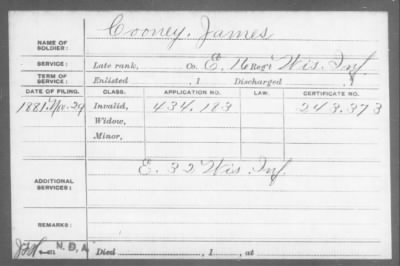 Cooney, James
NAME OF SOLDIER:
SERVICE: Late rank, Co. E, 16 Reg't Wis. Inf.
TERM OF SERVICE: Enlisted , 1 Discharged , 1
DATE OF FILING. CLASS. APPLICATION NO. LAW. CERTIFICATE NO.
1881, Nov. 29 Invalid, 434.183 243.373
Widow,
Minor,
E. 32 Wis. Inf.
ADDITIONAL SERVICES:
REMARKS:
N. D. A. Died , 1 , at